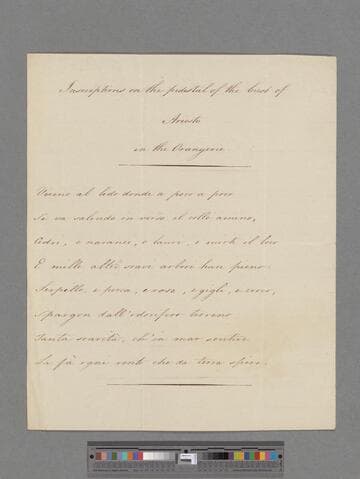 Inscriptions on the pedestal of the bust of
Ariosto
in the Orangerie
Vicino al lido donde a poco a poco
Si va salendo in verso il colle ameno,
Cedri, e naranci, e lauri, e mirti il loco
E mille altri soavi arbori han pieno
Serpillo, e persa, e rosa, e gigli, e croco,
Spargon dall'odorifero terreno
Tanta soavità, ch'in mar sentire
La fà ogni vento che da terra spire.